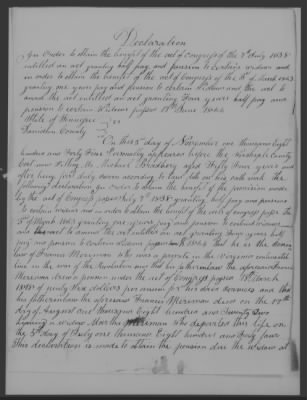 Declaration
In Order to obtain the benefit of the act of Congress of the 7th July 1838
entitled an act granting half pay and pension to certain widows and
in order to obtain the benefit of the act of Congress of the of March 1843
granting one years pay and pension to certain widows and the act to
amend the act entitled an act granting four years half pay and
pension to certain widows passed 17th June 1844
State of Tennessee
County
On this 5th day of November one thousand Eight
hundred and forty four Personally appeared before the County
Court Michael aged Fifty three years and
after being first duly sworn according to law doth on his oath make the
following declaration in order to obtain the benefit of the provision made
by the act of Congress passed July 7th 1838 granting half pay and pensions
to certain widows and in order to obtain the benefit of the act of congress passed the
3rd of March 1843 granting one years pay and pension to certain widows
and the act to amend the act entitled an act granting four years half
pay and pensions to certain widows passed June 1844 that he is the
law of Francis Merriman who was a private in the Virginia continental
line in the war of the Revolution and that his the aforesaid Francis
Merriman drew a pension under the act of Congress passed 18th March
1818 of ninety six dollars per annum for his services and that
his the aforesaid Francis Merriman died on the 17th
day of August one thousand Eight hundred and Twenty Two
leaving a widow Martha Merriman who departed this life on
the 5th day of July one thousand Eight hundred and forty four
This declaration is made to obtain the pension due the widow at